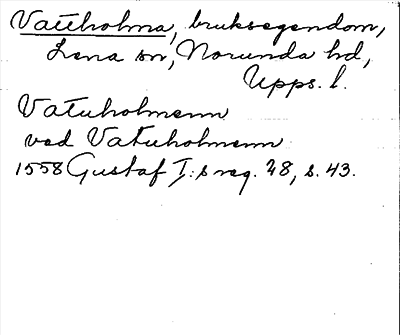 Vattholma, bruksegendom,
Lena sn, Norunda hd,
Upps. l.
Vatuholmenn
ved Vatuholmenn
1558 Gustaf I:s reg. 28, s. 43.